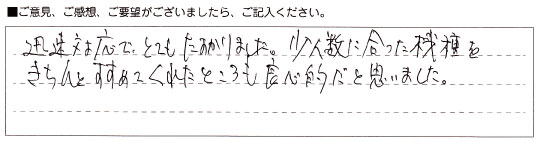 ■ご意見、ご感想、ご要望がございましたら、ご記入ください。
迅速対応で、とてもたすかりました。少人数に合った機種を
きちんとすすめてくれたところも良心的だと思いました。